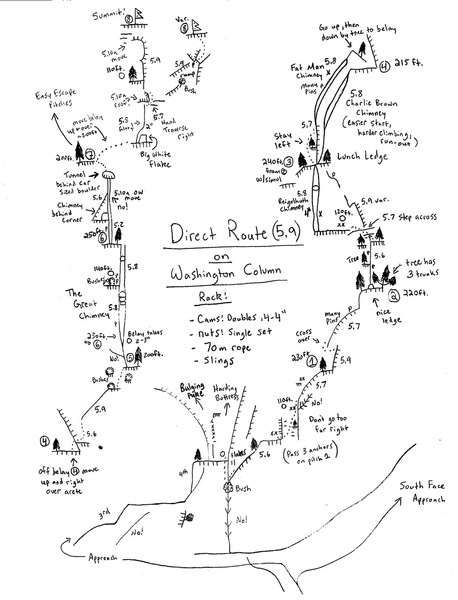 Summit!
8
Var.
8
5.10a
move
110ft.
5.9
5.9
ramp
Bush
5.10a
roof?
5.7
5.8
2"
Hand
Traverse
right
Big White
flake
Easy Escape
Pitches
move belay
up
200ft.
7
Tunnel
behind car
sized boulder
5.6
5.10a OW
move
no!
Chimney
behind
corner
5.2
250ft
6
140ft.
Bushes
5.8
The
Great
Chimney
5.8
230ft
to 6
Belay takes
2-5"
No!
5
200ft.
Bushes
5.9
4
5.6
Off belay 4 move
up and right
over arete
Go up, then
down by tree to belay
5.8
Fat Man
Chimney
many
pins
4
215ft.
5.8
Charlie Brown
Chimney
(easier start,
harder climbing,
run-out)
5.7
Stay
left
240ft.
3
from 2
w/simul
Lunch Ledge
5.8
Reigelhuth
Chimney
x
120ft.
xx
5.9 var.
5.7 step across
P
Tree
5.6
P
tree has
3 trunks
2
220ft.
nice
ledge
P
many
Pins
5.7
cross
over
230ft
1
5.9
xx
5.7
110ft.
xx
No!
Don't go too
far right
xx
5.6
(Pass 3 anchors
on pitch 1)
Direct Route (5.9)
on
Washington Column
Rack:
- Cams! Doubles .4-4"
- nuts! Single set
- 70m rope
- Slings
Bulging
Puke
Harding
Buttress
flakes
4th
Bush
3rd
No!
No!
Approach
South Face
Approach